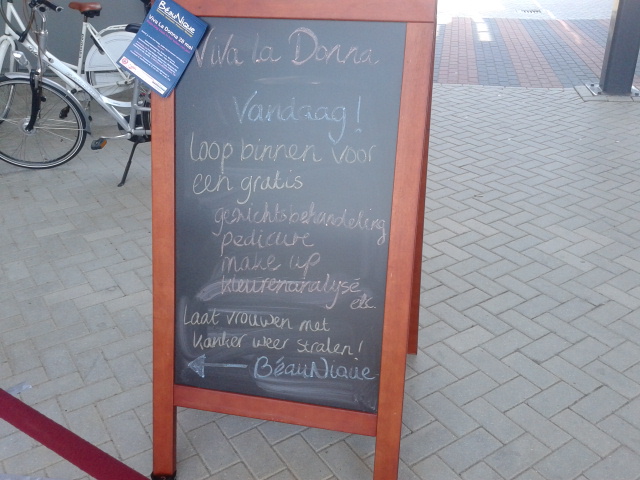 BéauNique
Viva La Donna 28 mei
Viva la Donna
Vandaag!
loop binnen voor
een gratis
gezichtsbehandeling
pedicure
make up
kleurenanalyse
etc.
Laat vrouwen met
kanker weer stralen!
BéauNique